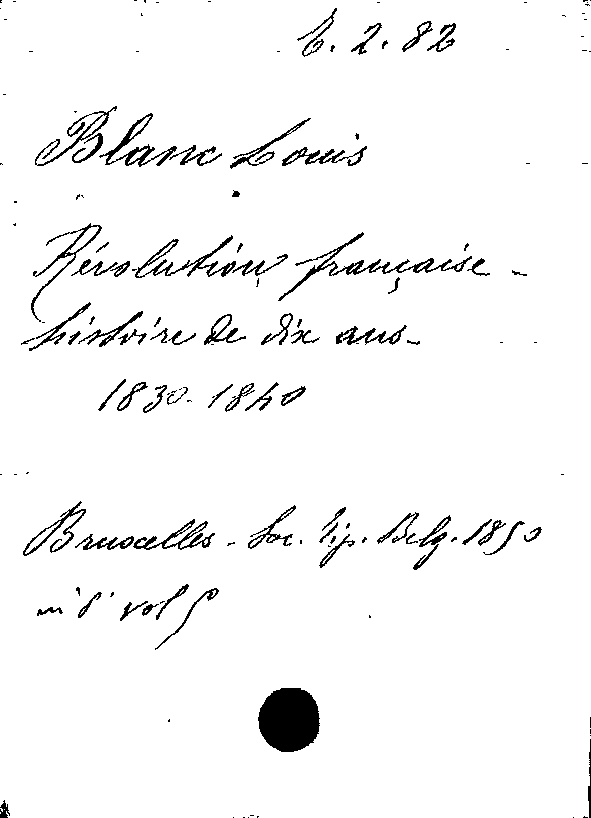 E. 2. 82
Blanc Louis
Révolution française -
histoire de dix ans -
1830-1840
Bruxelles - Soc. Tip. Belg. 1850
in 8° vol 5